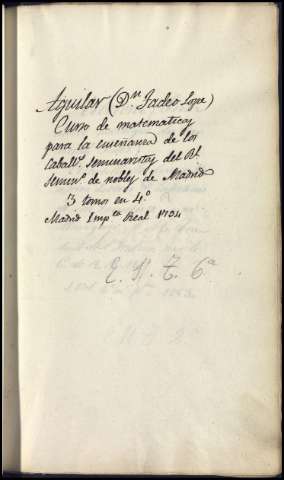 Aguilar (Dn. Tadeo Lope)
Curso de matematicas
para la enseñanza de los
Caballs. seminaristas del Rl.
semino. de nobles de Madrid
3 tomos en 4o.
Madrid Impta Real 1794
E. N. T. 6a